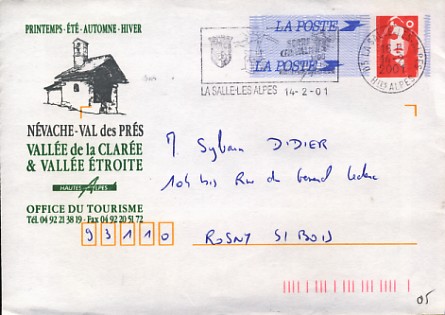 PRINTEMPS·ÉTÉ·AUTOMNE·HIVER
LA POSTE
LA POSTE
LA SALLE-LES ALPES 14-2-01
NÉVACHE-VAL des PRÉS
VALLÉE de la CLARÉE
& VALLÉE ÉTROITE
HAUTES Alpes
OFFICE DU TOURISME
Tél. 04 92 21 38 19 · Fax 04 92 20 51 72
M. Sylvain DIDIER
104 bis Rue du General Leclerc
93110
ROSNY S/ BOIS
05